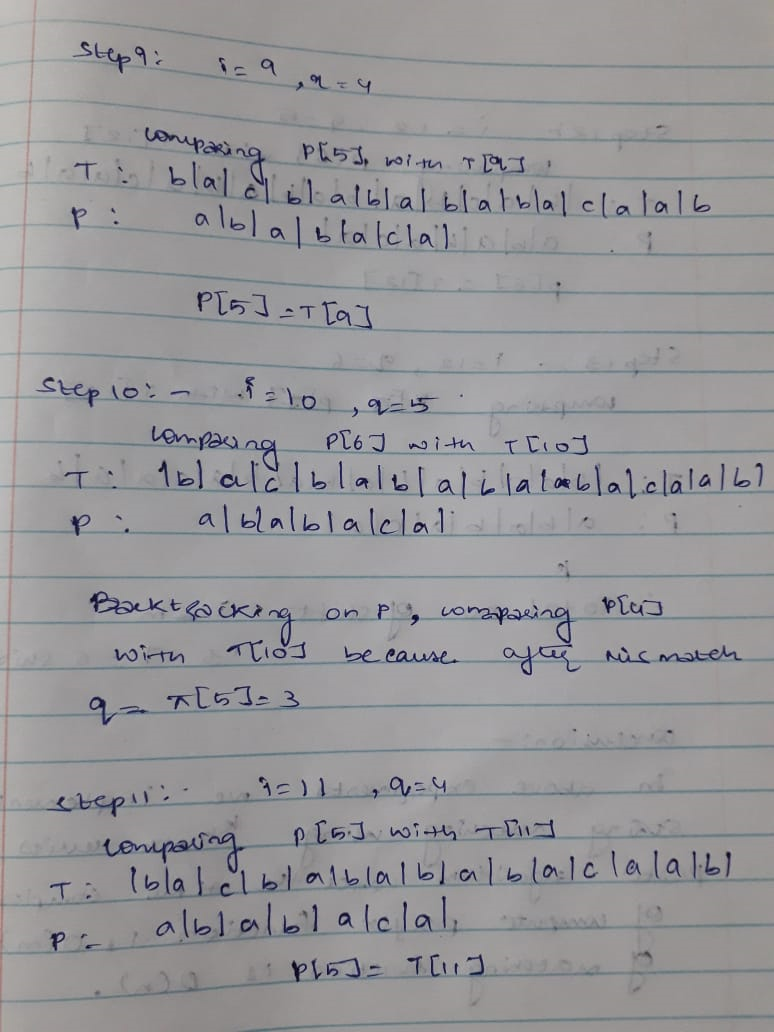 Step 9: i = 9, q = 4
comparing P[5], with T[9]
T : b|a|c|b|a|b|a|b|a|b|a|c|a|a|b
P : a|b|a|b|a|c|a|
P[5] = T[9]
Step 10: - i = 10, q = 5
comparing P[6] with T[10]
T : |b|a|c|b|a|b|a|b|a|b|a|c|a|a|b|
P : a|b|a|b|a|c|a|
Backtracking on P, comparing P[4]
with T[10] because after mismatch
q = π[5] = 3
step 11: - i = 11, q = 4
comparing P[5] with T[11]
T : |b|a|c|b|a|b|a|b|a|b|a|c|a|a|b|
P = a|b|a|b|a|c|a|
P[5] = T[11]